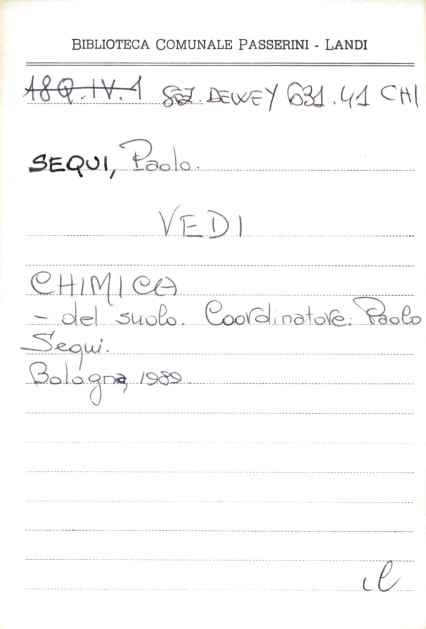 BIBLIOTECA COMUNALE PASSERINI - LANDI
18Q.IV.1 Sez. DEWEY 631.41 CHI
SEQUI, Paolo.
VEDI
CHIMICA
- del suolo. Coordinatore: Paolo
Sequi.
Bologna, 1989.